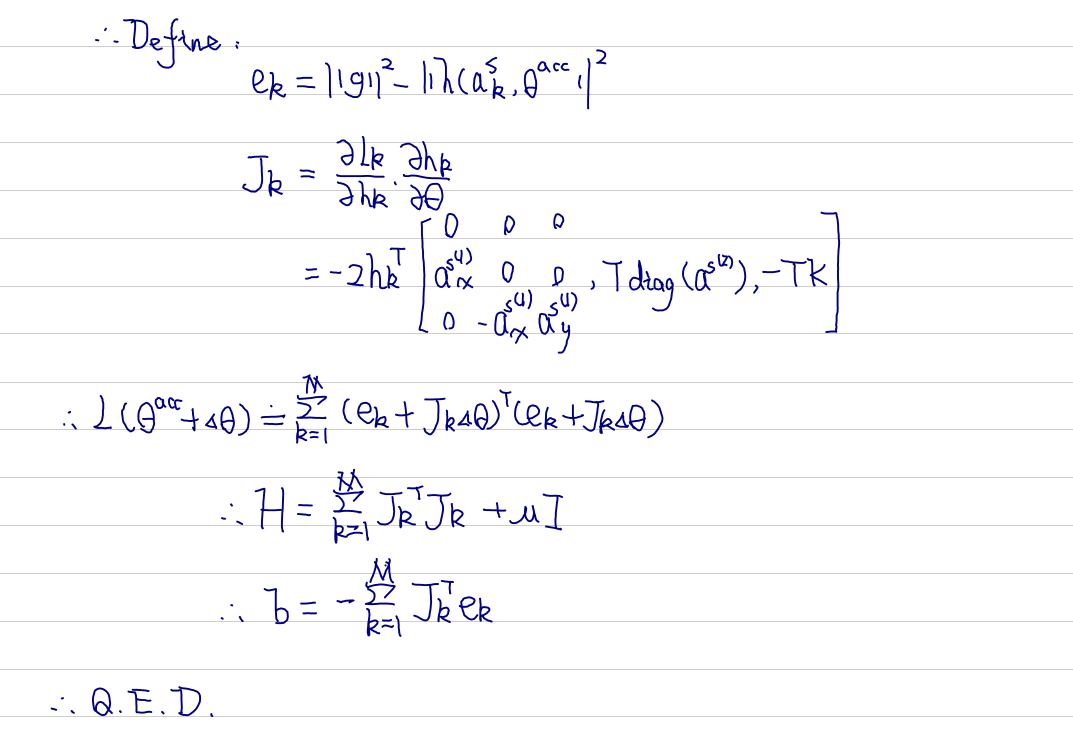 ∴ Define:
e_k = ||g||² - ||h(a_k^s, θ^acc)||²
J_k = ∂L_k/∂h_k · ∂h_k/∂θ
= -2h_k^T [ 0 0 0 ; a_x^{s(1)} 0 0 ; 0 -a_x^{s(1)} a_y^{s(1)} , T diag(a^{s(2)}), -TK ]
∴ L(θ^acc + Δθ) ≐ Σ_{k=1}^{M} (e_k + J_kΔθ)^T(e_k + J_kΔθ)
∴ H = Σ_{k=1}^{M} J_k^T J_k + μI
∴ b = - Σ_{k=1}^{M} J_k^T e_k
∴ Q.E.D.